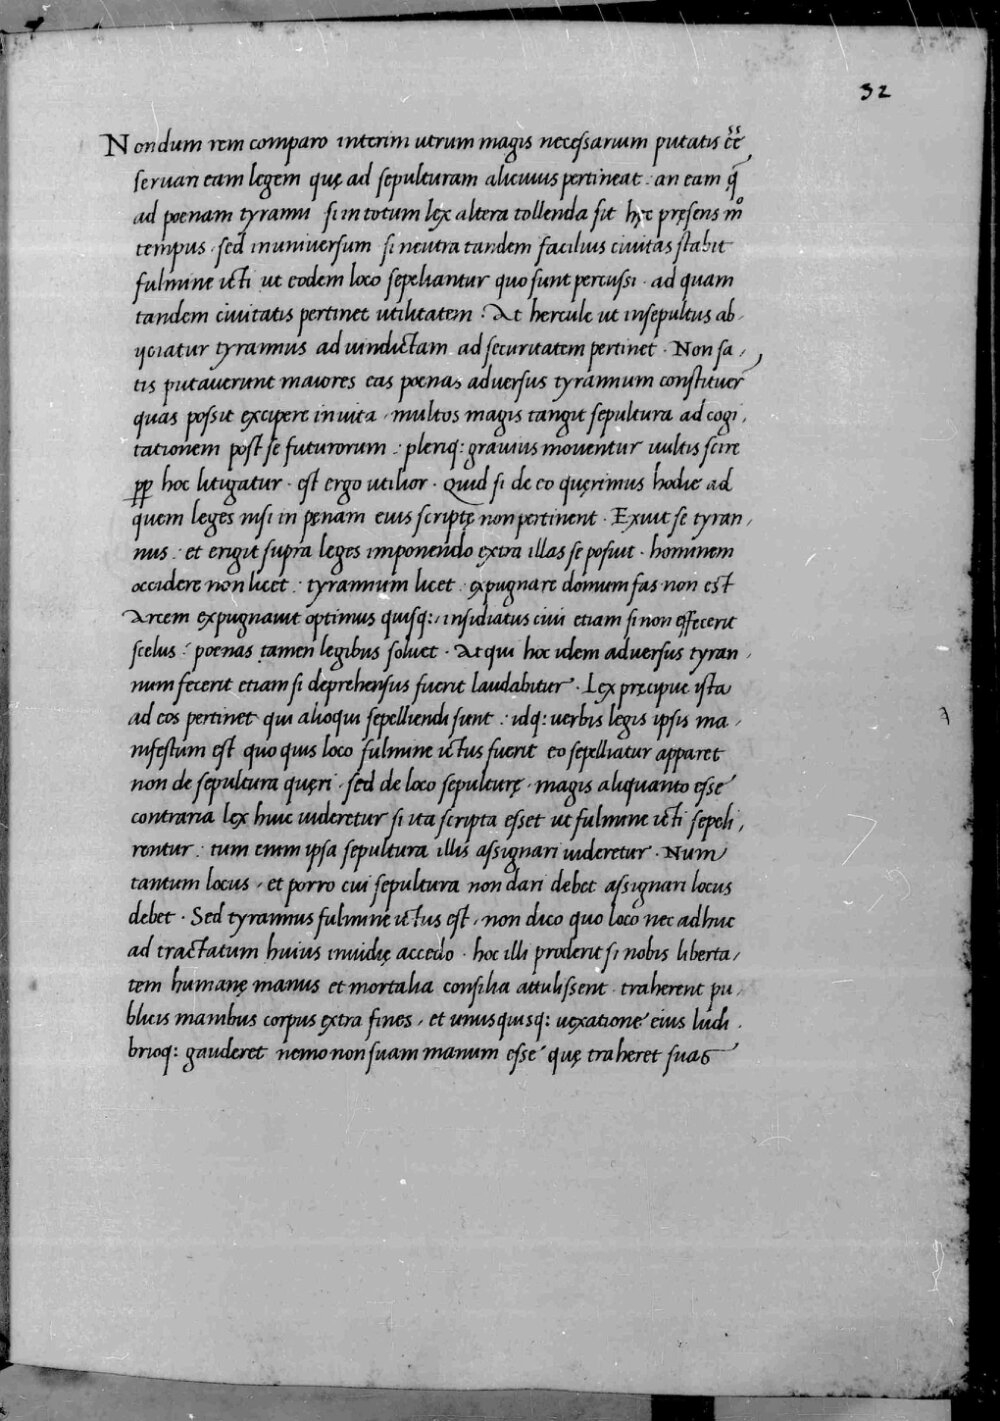 32
Nondum rem comparo interim utrum magis necessarium putatis eē
servari eam legem quę ad sepulturam alicuius pertineat : an eam q̄
ad poenam tyranni si in totum lex altera tollenda sit hęc pręsens mº
tempus · sed in universum si neutra tandem facilius civitas stabit
fulmine icti ut eodem loco sepeliantur quo sunt percussi · ad quam
tandem civitatis pertinet utilitatem · At hercule ut insepultus ab,
ijciatur tyrannus ad vindictam ad securitatem pertinet · Non sa,
tis putaverunt maiores eas poenas adversus tyrannum constituer̄
quas possit excipere in vita, multos magis tangit sepultura ad cogi,
tationem post se futurorum : pleriq: gravius moventur vultis scire
pp hoc litigatur · est ergo utilior · Quid si de eo quęrimus hodie ad
quem leges nisi in pęnam eius scriptę non pertinent · Exuit se tyran,
nus : et erigit supra leges imponendo extra illas se posuit · hominem
occidere non licet : tyrannum licet · expugnare domum fas non est
Arcem expugnavit optimus quisq:, insidiatus civi etiam si non effecerit
scelus : poenas tamen legibus solvet · Atqui hoc idem adversus tyran,
num fecerit etiam si deprehensus fuerit laudabitur · Lex pręcipue ista
ad eos pertinet qui alioqui sepelliendi sunt : idq: verbis legis ipsis ma,
nifestum est quo quis loco fulmine ictus fuerit eo sepelliatur apparet
non de sepultura quęri, sed de loco sepulturę, magis aliquanto esse
contraria lex huic videretur si ita scripta esset ut fulmine icti sepeli,
rentur : tum enim ipsa sepultura illis assignari videretur · Num
tantum locus, et porro cui sepultura non dari debet assignari locus
debet · Sed tyrannus fulmine ictus est, non dico quo loco nec adhuc
ad tractatum huius invidię accedo · hoc illi proderit si nobis liberta,
tem humanę manus et mortalia consilia attulissent · traherent pu,
blicis manibus corpus extra fines, et unusquisq: vexatione eius ludi,
brioq: gauderet nemo non suam manum esse quę traheret suas